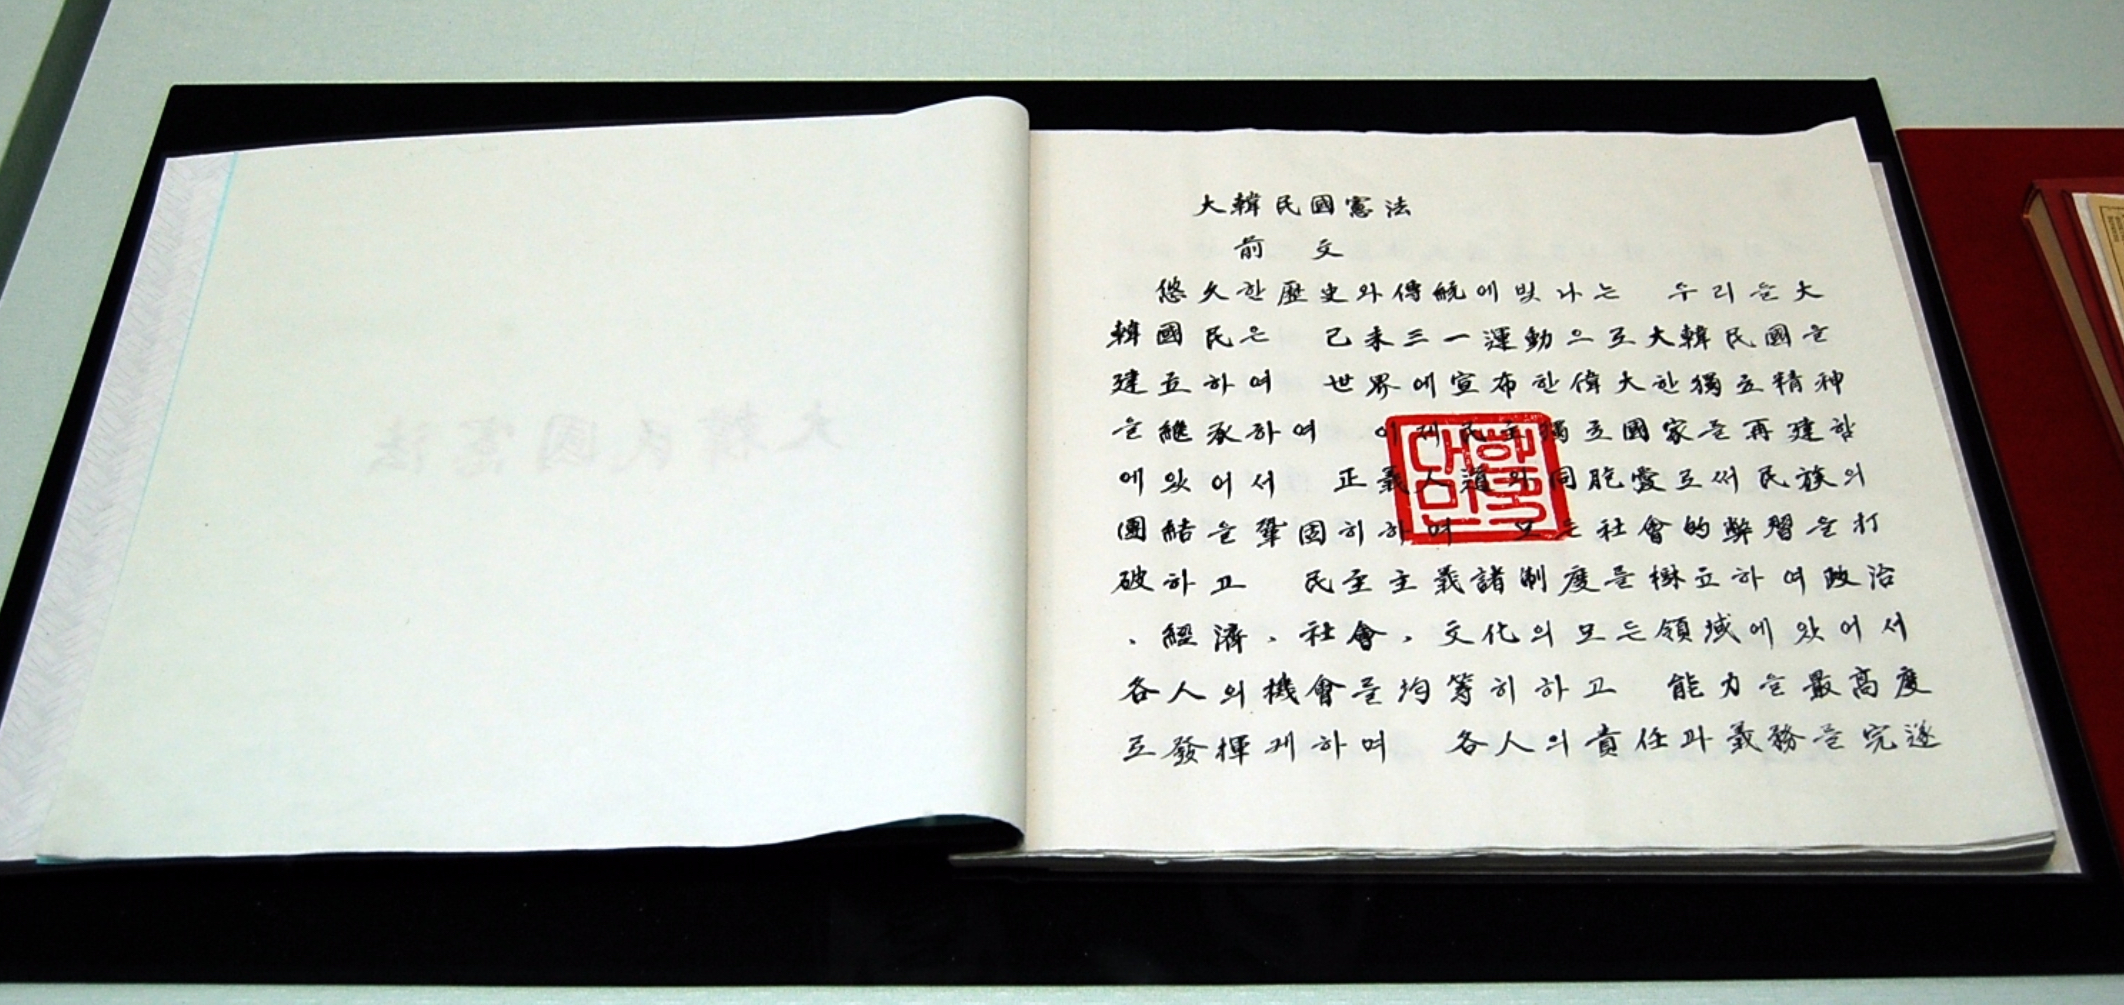 大韓民國憲法
大韓民國憲法
前文
悠久한歷史와傳統에빛나는 우리들大
韓國民은 己未三一運動으로大韓民國을
建立하여 世界에宣布한偉大한獨立精神
을繼承하여 이제民主獨立國家를再建함
에있어서 正義人道와同胞愛로써民族의
團結을鞏固히하며 모든社會的弊習을打
破하고 民主主義諸制度를樹立하여政治
、經濟、社會、文化의모든領域에있어서
各人의機會를均等히하고 能力을最高度
로發揮케하며 各人의責任과義務를完遂
대한민국